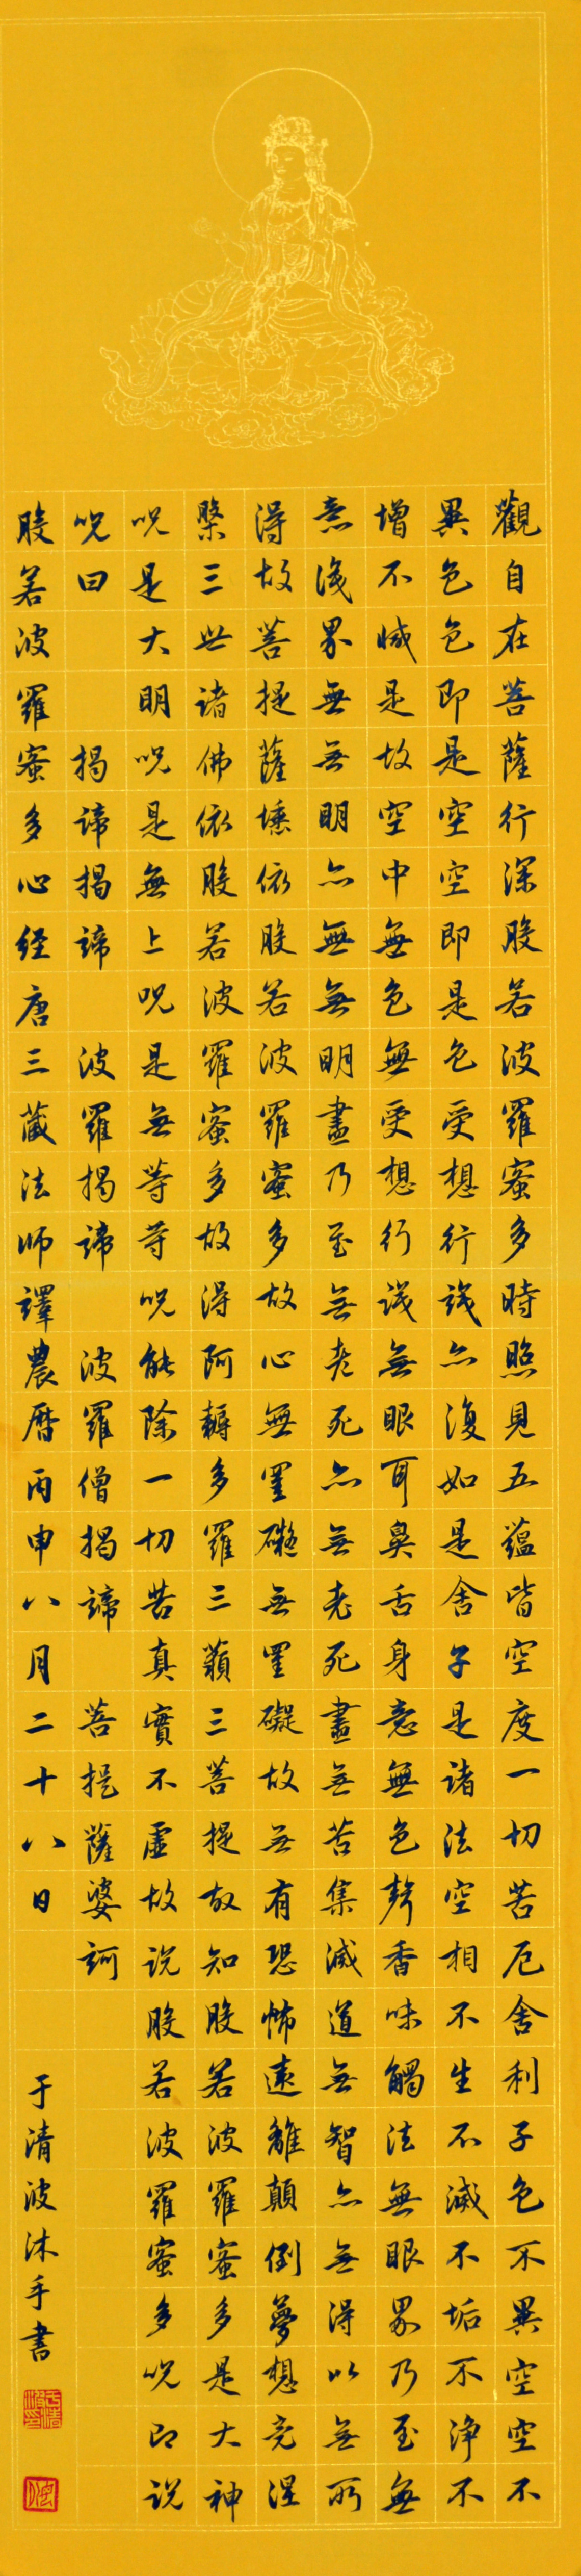 觀自在菩薩行深般若波羅蜜多時照見五蘊皆空度一切苦厄舍利子色不異空空不
異色色即是空空即是色受想行識亦復如是舍子是諸法空相不生不滅不垢不淨不
增不減是故空中無色無受想行識無眼耳鼻舌身意無色聲香味觸法無眼界乃至無
意識界無無明亦無無明盡乃至無老死亦無老死盡無苦集滅道無智亦無得以無所
得故菩提薩埵依般若波羅蜜多故心無罣礙無罣礙故無有恐怖遠離顛倒夢想竟涅
槃三世諸佛依般若波羅蜜多故得阿耨多羅三藐三菩提故知般若波羅蜜多是大神
呪是大明呪是無上呪是無等等呪能除一切苦真實不虛故說般若波羅蜜多呪即說
呪曰 揭諦揭諦 波羅揭諦 波羅僧揭諦 菩提薩婆訶
般若波羅蜜多心経唐三藏法師譯農曆丙申八月二十八日 于清波沐手書